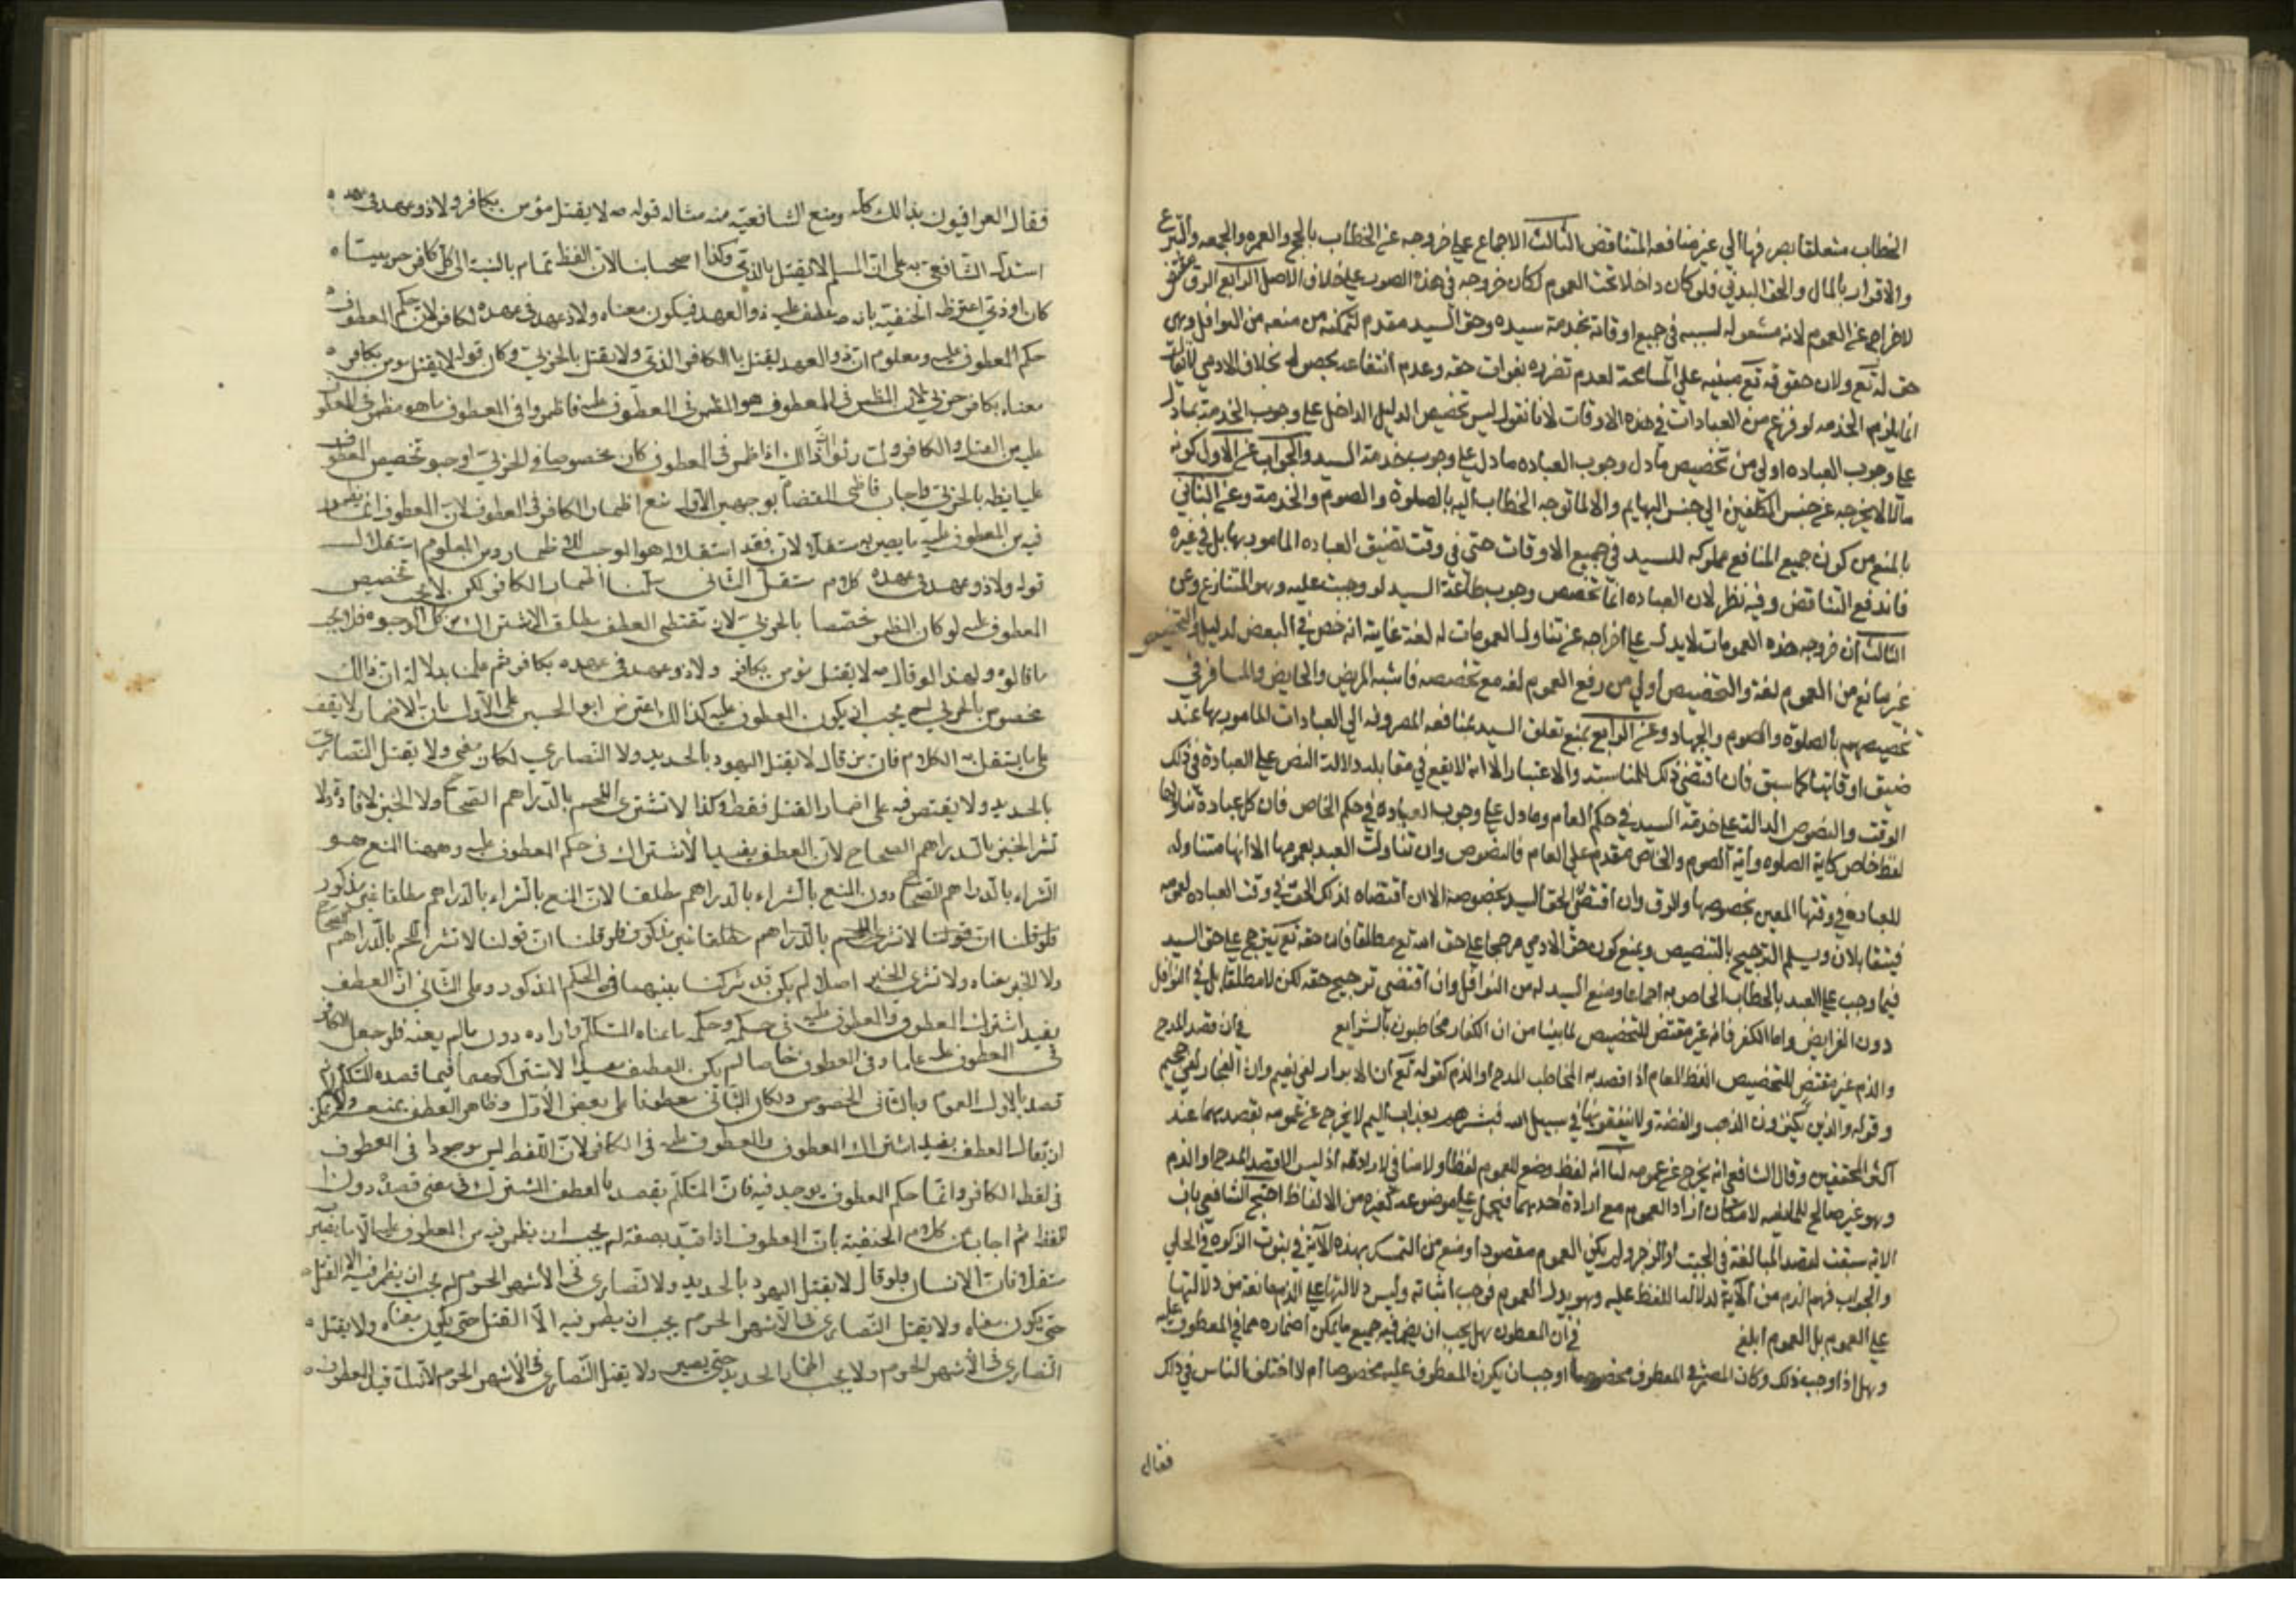 الخطاب متعلقا بصرفها الى غير منافعه المتناقض الثالث الاجماع على خروجه عن الخطاب بالحج والعمره والجمعه والتبرع
والاقرار بالمال والحق البدني فلو كان داخلا تحت العموم لكان خروجه في هذه الصور على خلاف الاصل الرابع الرق مقتض
لاخراجه عن العموم لانه مشغول لسببه في جميع اوقاته بخدمة سيده وحق السيد مقدم لتمكنه من منعه من النوافل وهى
حق له تع ولان حقوقه تع مبنيه على المسامحة لعدم تضرره بفوات حقه وعدم انتفاعه بحصوله بخلاف الادمي
انما يلزم الخدمه لو فرغ من العبادات في هذه الاوقات لانا نقول ليس تخصيص الدليل الدال على وجوب الخدمة بما دل
على وجوب العباده اولى من تخصيص ما دل وجوب العباده ما دل على وجوب خدمة السيد والجواب عن الاول كونه
مالا لا يخرجه عن جنس المكلفين الى جنس البهايم والا لما توجه الخطاب اليه بالصلوة والصوم والخدمة وعن الثاني
بالمنع من كون جميع المنافع مملوكه للسيد في جميع الاوقات حتى في وقت تضيق العباده المامور بها بل في غيره
فاندفع التناقض وفيه نظر لان العباده انما تخصص وجوب طاعة السيد لو وجبت عليه وهو المتنازع وعن
الثالث ان خروجه هذه العمومات لا يدل على اخراجه عن تناول العمومات له لغة غايته انه خص في البعض لدليل والتخصيص
غير مانع من العموم لغة والتخصيص اولى من رفع العموم لغه مع تخصصه فاشبه المريض والحايض والمسافر في
تخصيصهم بالصلوة والصوم والجهاد وعن الرابع بمنع تعلق السيد بمنافعه المصروفه الى العبادات المامور بها عند
ضيق اوقاتها كما سبق فان اقتضى ذلك المناسبة والاعتبار الا انه لا يقع في مقابله دلالت النص على العبادة في ذلك
الوقت والنصوص الدالة على خدمة السيد في حكم العام وما دل على وجوب العباده في حكم الخاص فان كل عبادة تناولها
لفظ خاص كاية الصلوه واية الصوم والخاص مقدم على العام فالنصوص وان تناولت العبد بعمومها الا انها متناوله
للعباده في وقتها المعين بخصوصها والرق وان اقتضى لحق السيد بخصوصه الا ان اقتضاه لذلك الحق في وقت العباده لعمومه
فيتقابلان ويسلم الترجيح بالتنصيص ويمنع كون حق الادمي مرجحا على حق الله تع مطلقا فان حقه تع يترجح على حق السيد
فيما وجب على العبد بالخطاب الخاص به اجماعا ومنع السيد له من النوافل وان اقتضى ترجيح حقه لكن لا مطلقا بل في النوافل
دون الفرايض واما الكفر فانه غير مقتض للتخصيص لما بينا من ان الكفار مخاطبون بالشرايع في ان قصد المدح
والذم غير مقتض للتخصيص اللفظ العام اذا قصد به المخاطب المدح او الذم كقوله تع ان الابرار لفي نعيم وان الفجار لفي جحيم
وقوله والذين يكنزون الذهب والفضة ولا ينفقونها في سبيل الله فبشرهم بعذاب اليم لا يخرج عن عمومه بقصدهما عند
اكثر المحققين وقال الشافعي انه يخرج عن عمومه لنا انه لفظ وضع للعموم لفظا ولا منافي لارادته اذ ليس الا قصد المدح او الذم
وهو غير صالح للمانعيه لامكان اراد العموم مع ارادة احدهما فيحمل على موضوعه كغيره من الالفاظ احتج الشافعي بان
الاية سبقت لقصد المبالغة في الحث او الزجر ولم يكن العموم مقصودا ومنع من التمسك بهذه الآية في ثبوت الزكوه في الحلى
والجواب فهم الذم من الآية لدلالة اللفظ عليه وهو يدل العموم فوجب اثباته وليس دلالتها على الذم مانعة من دلالتها
على العموم بل العموم ابلغ في ان المعطوف هل يجب ان يضمر فيه جميع ما يمكن اضماره مما في المعطوف عليه
وهل اذا وجب ذلك وكان المضمر في المعطوف مخصوصا اوجب ان يكون المعطوف عليه مخصوصا ام لا اختلف الناس في ذلك
فقال
فقال العراقيون بذالك كله ومنع الشافعيه منه مثاله قوله صه لا يقتل مؤمن بكافر ولا ذو عهد في عهده
استدل الشافعي به على ان المسلم لا يقتل بالذمي وكذا اصحابنا لان اللفظ تمام بالنسبة الى كل كافر حربيا
كان او ذمي اعترضه الحنفيه بانه صه عطف عليه ذو العهد فيكون معناه ولا ذو عهد في عهده لكافر لان حكم المعطوف
حكم المعطوف عليه ومعلوم ان ذو العهد يقتل بالكافر الذمي ولا يقتل بالحربي وكان قوله لا يقتل مومن بكافر
معناه بكافر حربي لان المظهر في المعطوف هو المظهر في المعطوف عليه
عليه من القتل والكافر اذا ظهر في المعطوف كان مخصوصا في الحربي اوجب تخصيص المعطوف
عليه ايضا بالحربي واجاب قاضي القضاة بوجهين الاول منع اظهار الكافر في المعطوف لان المعطوف انما يظهر
فيه من المعطوف عليه ما يصير به مستقلا لان فقد استقلاله هو الموجب للاظهار ومن المعلوم استقلال
قوله ولا ذو عهد في عهده كلام مستقل الثاني سلمنا اظهار الكافر لكن لا يجب تخصيص
المعطوف عليه لو كان المظهر مختصا بالحربي لان مقتضى العطف مطلق الاشتراك من كل الوجوه
ما قالوه ولهذا لو قال صه لا يقتل مؤمن بكافر ولا ذو عهد في عهده بكافر ثم علمنا بدلالة ان ذالك
مخصوص بالحربي لم يجب ان يكون المعطوف عليه كذالك اعترض ابو الحسين على الاول بان الاضمار لا يقف
على ما يستقل به الكلام فان من قال لا يقتل اليهود بالحديد ولا النصاري لكان معنى ولا يقتل النصارى
بالحديد ولا يقتصر فيه على اضمار القتل فقط وكذا لا تشترى اللحم بالدراهم الصحاح ولا الخبز لافاد ولا
تشتر الخبز بالدراهم الصحاح لان العطف يفيد الاشتراك في حكم المعطوف عليه وههنا المنع هو
الشراء بالدراهم الصحاح دون المنع بالشراء بالدراهم مطلقا لان المنع بالشراء بالدراهم مطلقا غير مذكور
فلو قلنا ان قولنا لا تشتر اللحم بالدراهم الصحاح
ولا الخبز معناه ولا تشترى الخبز اصلا لم يكن قد شركنا بينهما في الحكم المذكور وعلى الثاني ان العطف
يفيد اشتراك المعطوف والمعطوف عليه في حكمه وحكمه ما عناه المتكلم واراده دون ما لم يعنه فلو جعل الكافر
في المعطوف عليه عاما وفي المعطوف خاصا لم يكن العطف مفيدا لاشتراكهما فيما قصده المتكلم لانه
قصد بالاول العموم وبالثاني الخصوص ولكان الثاني معطوفا على بعض الاول وظاهر العطف يمنعه ولا يمكن
ان يقال العطف يفيد اشتراك المعطوف والمعطوف عليه في الكافر لان اللفظ ليس موجودا في المعطوف
في لفظ الكافر وانما حكم المعطوف يوجد فيه فان المتكلم يقصد بالعطف المشترك في معنى قصده دون
اللفظ ثم اجاب عن كلام الحنفيه بان المعطوف اذا قيد بصفة لم يجب ان يظهر فيه من المعطوف عليه الا ما يصير
مستقلا فان الانسان فلو قال لا يقتل اليهود بالحديد ولا النصارى في الاشهر الحرم لم يجب ان يظهر فيه الا القتل
حتى يكون معناه ولا يقتل النصارى في الاشهر الحرم يجب ان يظهر فيه الا القتل حتى يكون معناه ولا يقتل
النصارى في الاشهر الحرم ولا يجب اظهار الحديد حتى يصير ولا يقتل النصارى في الاشهر الحرم لانه لما قيد المعطوف